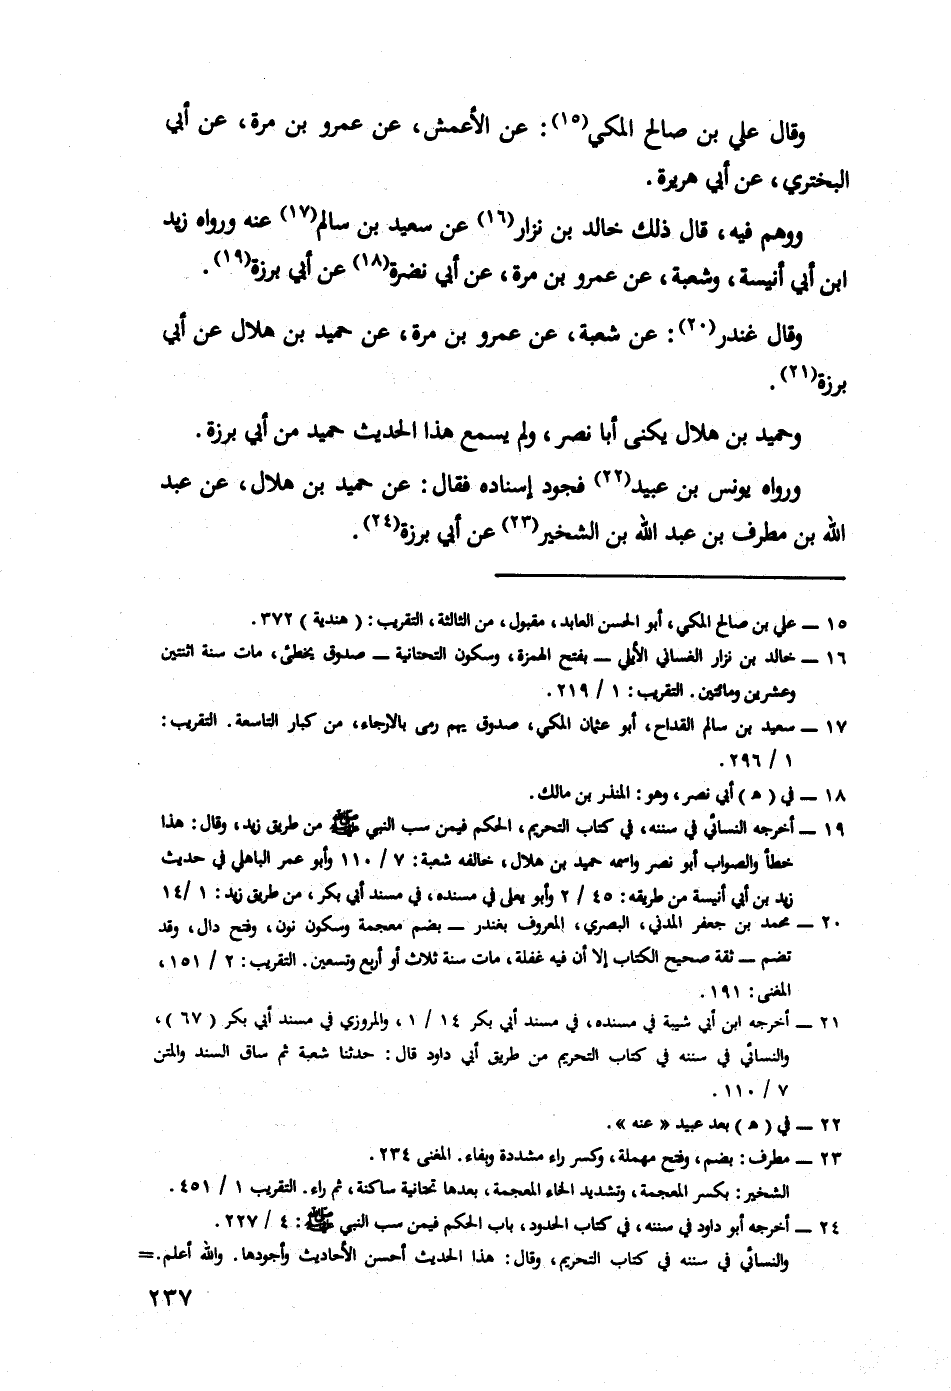 وقال علي بن صالح المكي(١٥): عن الأعمش، عن عمرو بن مرة، عن أبي
البختري، عن أبي هريرة.
ووهم فيه، قال ذلك خالد بن نزار(١٦) عن سعيد بن سالم(١٧) عنه ورواه زيد
ابن أبي أنيسة، وشعبة، عن عمرو بن مرة، عن أبي نضرة(١٨) عن أبي برزة(١٩).
وقال غندر(٢٠): عن شعبة، عن عمرو بن مرة، عن حميد بن هلال عن أبي
برزة(٢١).
وحميد بن هلال يكنى أبا نصر، ولم يسمع هذا الحديث حميد من أبي برزة.
ورواه يونس بن عبيد(٢٢) فجود إسناده فقال: عن حميد بن هلال، عن عبد
الله بن مطرف بن عبد الله بن الشخير(٢٣) عن أبي برزة(٢٤).
١٥ ــ علي بن صالح المكي، أبو الحسن العابد، مقبول، من الثالثة، التقريب: (هندية) ٣٧٢.
١٦ ــ خالد بن نزار الغساني الأيلي ــ بفتح الهمزة، وسكون التحتانية ــ صدوق يخطئ، مات سنة اثنتين
وعشرين ومائتين. التقريب: ١ / ٢١٩.
١٧ ــ سعيد بن سالم القداح، أبو عثمان المكي، صدوق يهم رمى بالارجاء، من كبار التاسعة. التقريب:
١ / ٢٩٦.
١٨ ــ في (هـ) أبي نصر، وهو: المنذر بن مالك.
١٩ ــ أخرجه النسائي في سننه، في كتاب التحريم، الحكم فيمن سب النبي ﷺ من طريق زيد، وقال: هذا
خطأ والصواب أبو نصر واسمه حميد بن هلال، خالفه شعبة: ٧ / ١١٠ وأبو عمر الباهلي في حديث
زيد بن أبي أنيسة من طريقه: ٤٥ / ٢ وأبو يعلى في مسنده، في مسند أبي بكر، من طريق زيد: ١ /١٤
٢٠ ــ محمد بن جعفر المدني، البصري، المعروف بغندر ــ بضم معجمة وسكون نون، وفتح دال، وقد
تضم ــ ثقة صحيح الكتاب إلا أن فيه غفلة، مات سنة ثلاث أو أربع وتسعين. التقريب: ٢ / ١٥١،
المغنى: ١٩١.
٢١ ــ أخرجه ابن أبي شيبة في مسنده، في مسند أبي بكر ١٤ / ١، والمروزي في مسند أبي بكر (٦٧)،
والنسائي في سننه في كتاب التحريم من طريق أبي داود قال: حدثنا شعبة ثم ساق السند والمتن
٧ / ١١٠.
٢٢ ــ في (هـ) بعد عبيد «عنه».
٢٣ ــ مطرف: بضم، وفتح مهملة، وكسر راء مشددة وبفاء. المغنى ٢٣٤.
الشخير: بكسر المعجمة، وتشديد الخاء المعجمة، بعدها تحتانية ساكنة، ثم راء. التقريب ١ / ٤٥١.
٢٤ ــ أخرجه أبو داود في سننه، في كتاب الحدود، باب الحكم فيمن سب النبي ﷺ: ٤ / ٢٢٧.
والنسائي في سننه في كتاب التحريم، وقال: هذا الحديث أحسن الأحاديث وأجودها. والله أعلم.=
٢٣٧